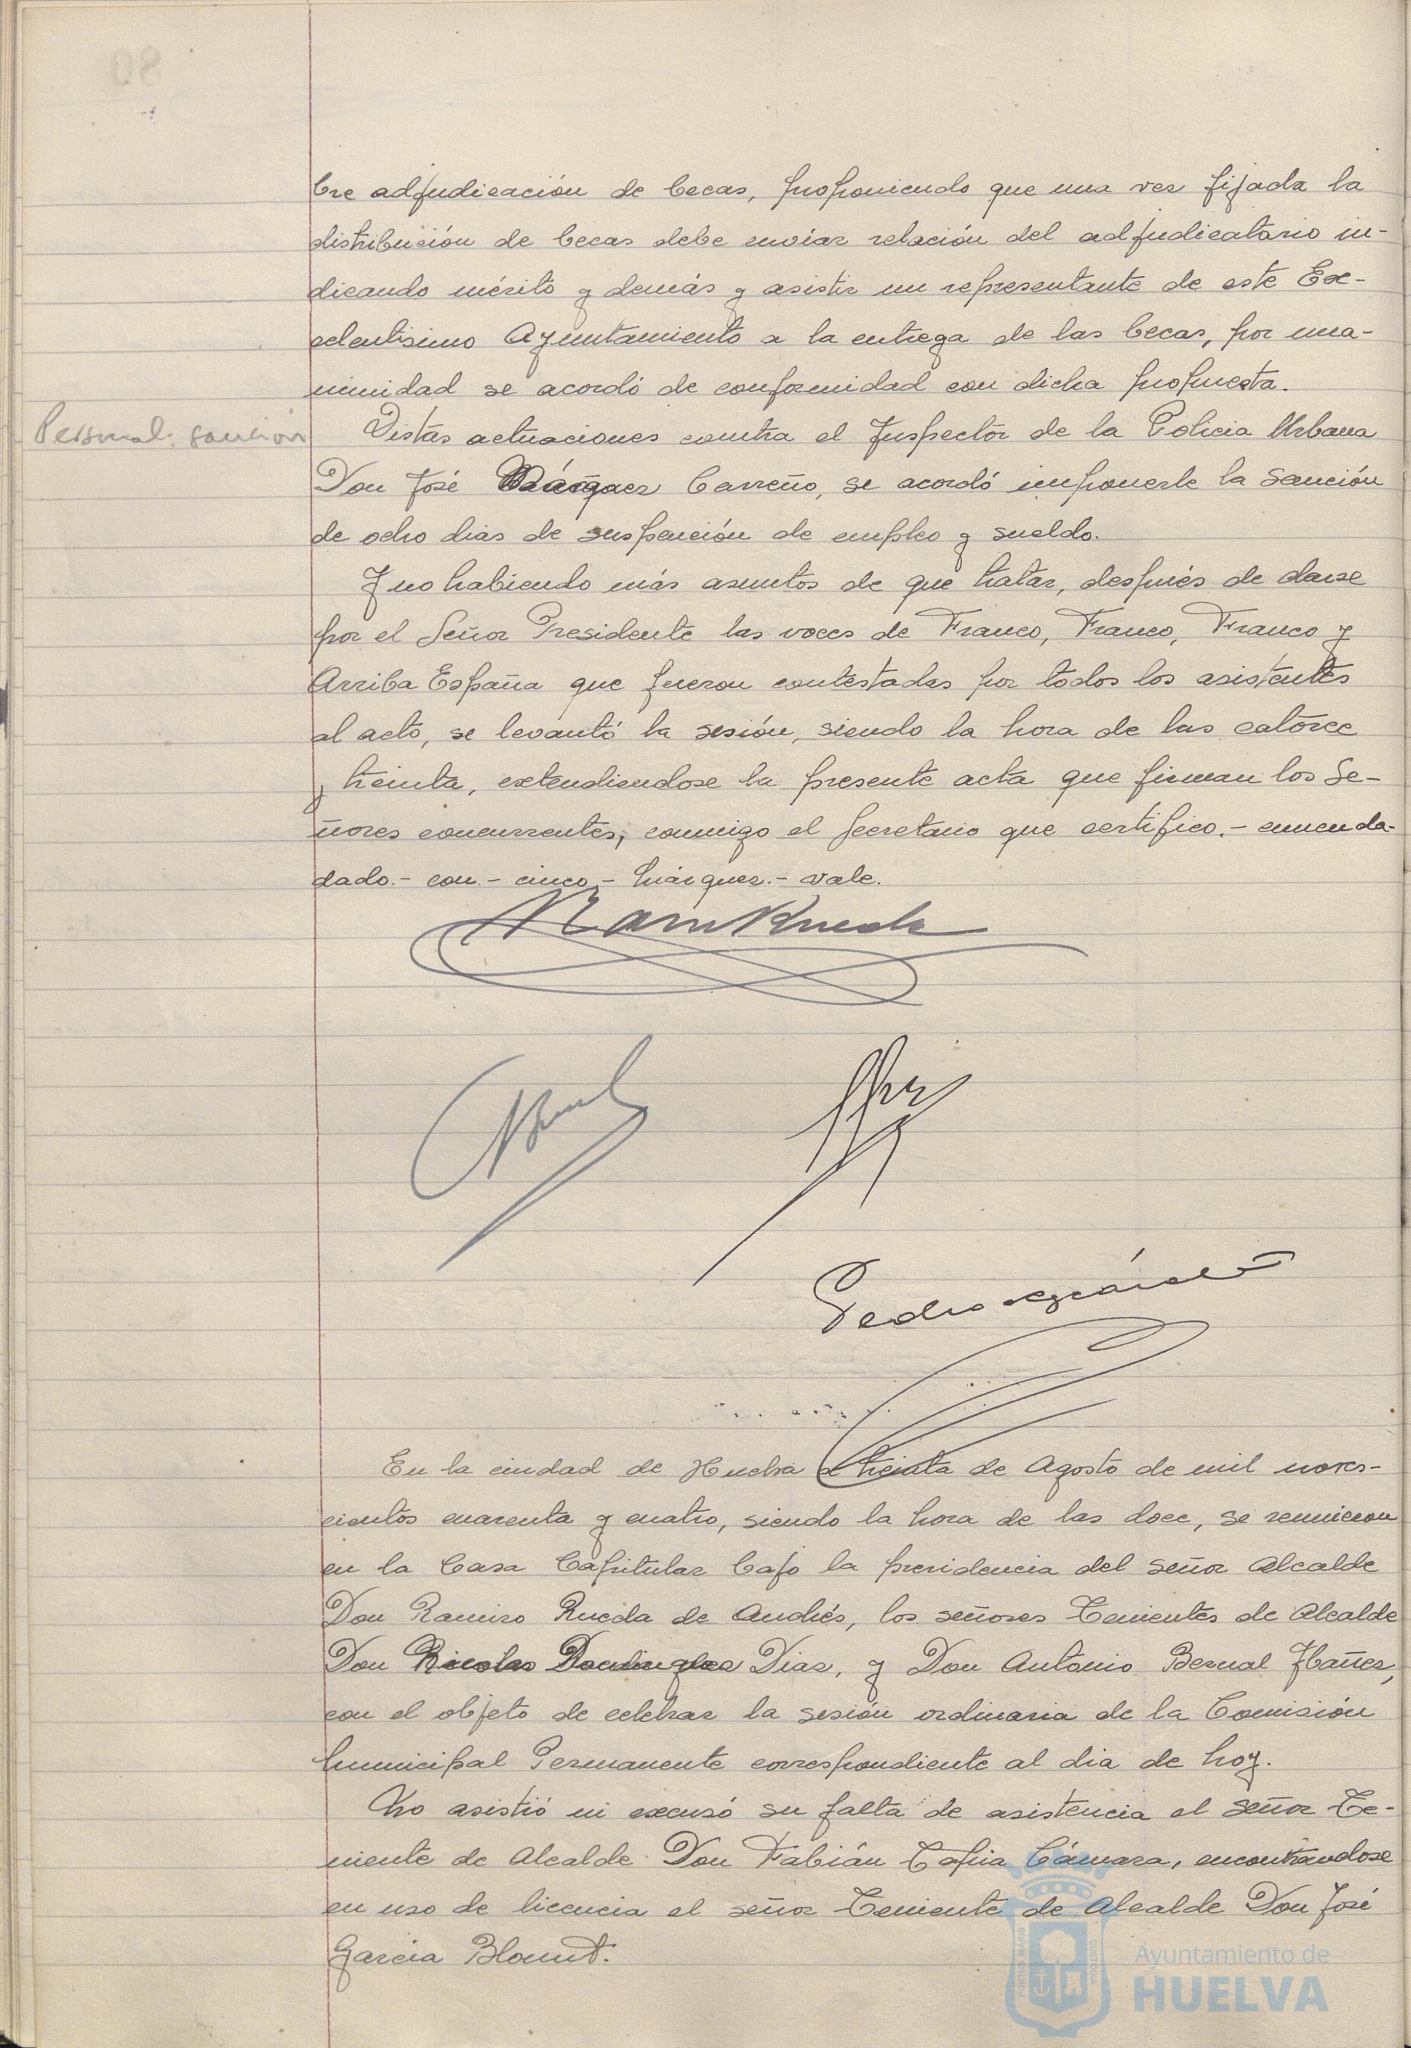 bre adjudicación de becas, proponiendo que una vez fijada la
distribución de becas debe enviar relación del adjudicatario in-
dicando mérito y demás y asistir un representante de este Ex-
celentisimo Ayuntamiento a la entrega de las becas, por una-
nimidad se acordó de conformidad con dicha propuesta.
Personal, sanción
Vistas actuaciones contra el Inspector de la Policia Urbana
Don José Márquez Carreño, se acordó imponerle la sanción
de ocho dias de suspención de empleo y sueldo.
Y no habiendo más asuntos de que tratar, después de darse
por el Señor Presidente las voces de Franco, Franco, Franco y
Arriba España que fueron contestadas por todos los asistentes
al acto, se levantó la sesión, siendo la hora de las catorce
y treinta, extendiendose la presente acta que firman los Se-
ñores concurrentes, conmigo el Secretario que certifico.- enmenda-
dado.- con - cinco - Márquez.- vale.
En la ciudad de Huelva a treinta de Agosto de mil noves-
cientos cuarenta y cuatro, siendo la hora de las doce, se reunieron
en la Casa Capitular bajo la presidencia del señor Alcalde
Don Ramiro Rueda de Andrés, los señores Tenientes de Alcalde
Don Nicolas Dominguez Diaz, y Don Antonio Bernal Ibañez,
con el objeto de celebrar la sesión ordinaria de la Comisión
Municipal Permanente correspondiente al dia de hoy.
No asistió ni excusó su falta de asistencia el señor Te-
niente de Alcalde Don Fabián Tapia Cámara, encontrandose
en uso de licencia el señor Teniente de Alcalde Don José
Garcia Blount.
Ayuntamiento de
HUELVA